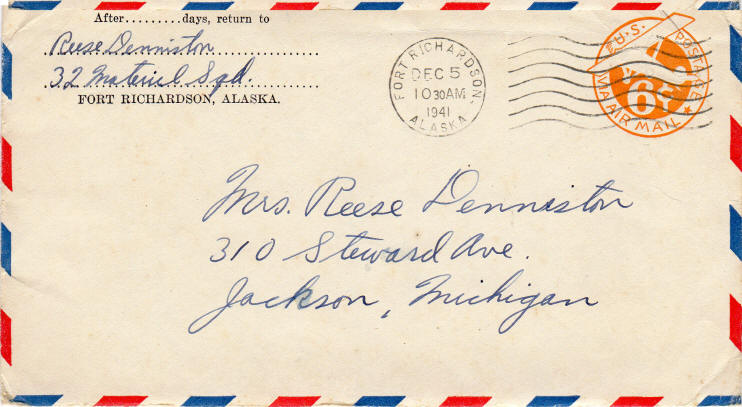 After.........days, return to
Reese Denniston
32 Materiel Sqd.
FORT RICHARDSON, ALASKA.
FORT RICHARDSON,
DEC 5
10 30 AM
1941
ALASKA
U.S. POSTAGE
6¢
VIA AIR MAIL
Mrs. Reese Denniston
310 Steward Ave.
Jackson, Michigan